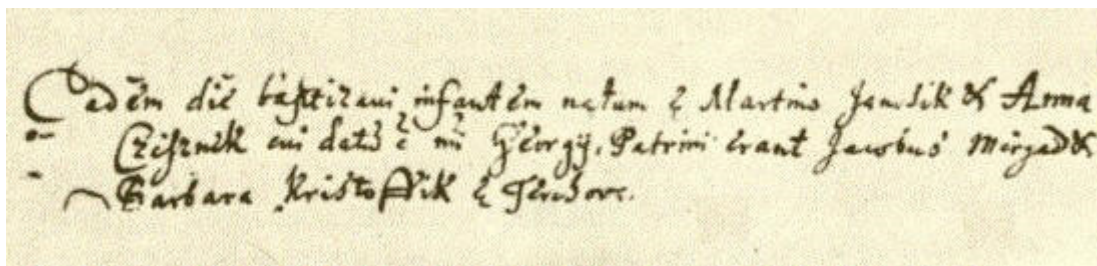 Eadem die baptizaui infantem natum ē Martino Janosik & Anna
Cziſznik cui datū ē nn̄ Georgÿ, Patrini erant Jacobus Merjad &
Barbara Kristoffik ē Terchove.